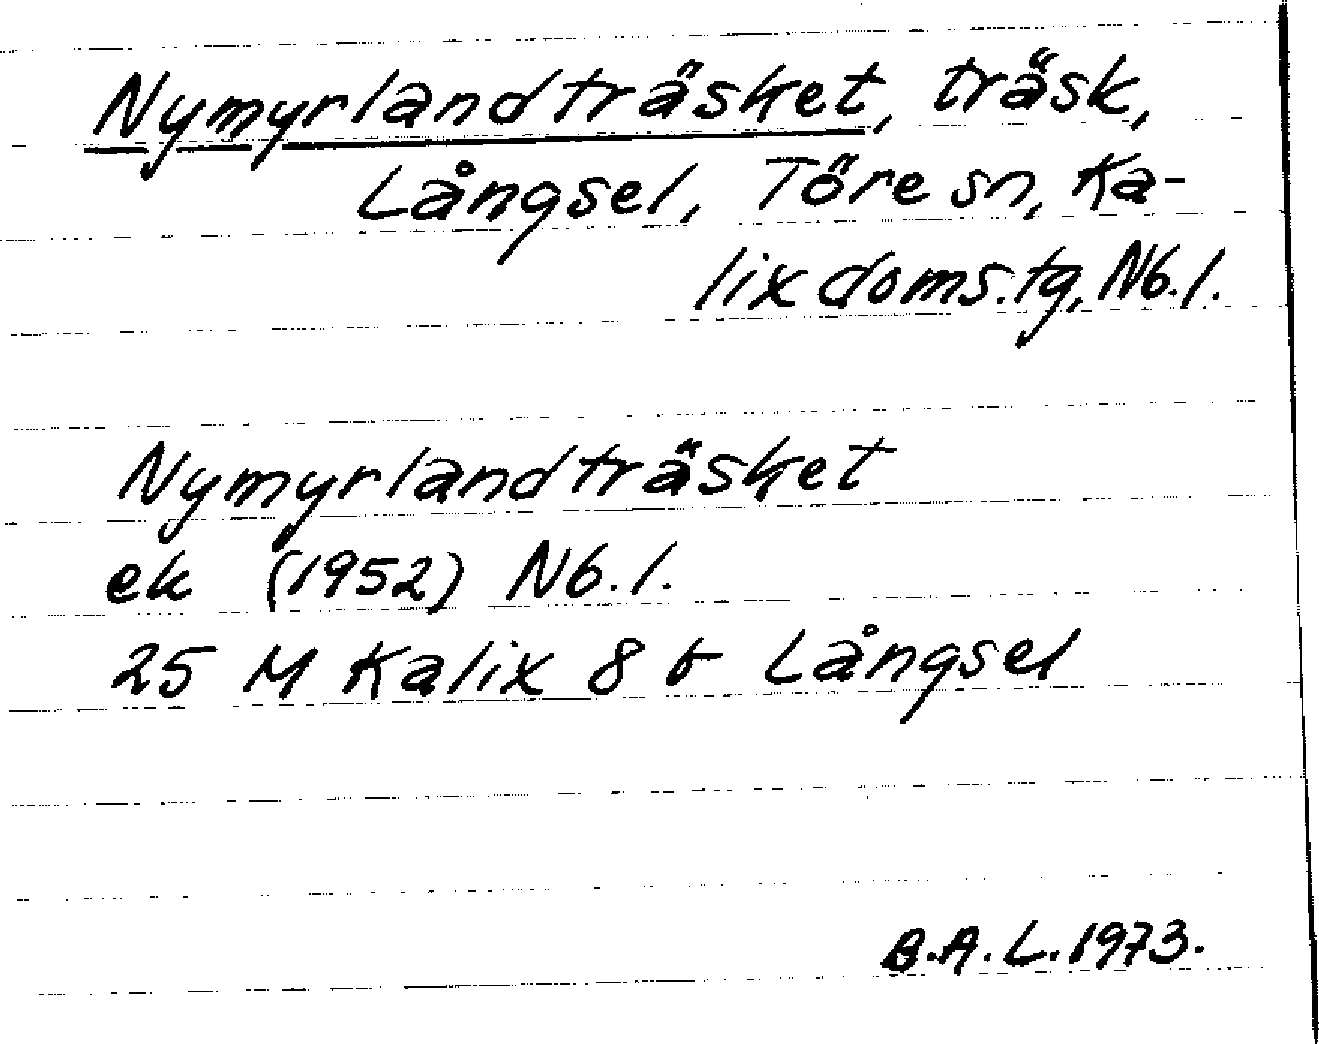 Nymyrlandträsket, träsk,
Långsel, Töre sn, Ka-
lix doms.tg, Nb.l.
Nymyrlandträsket
ek (1952) Nb.l.
25 M Kalix 8 b Långsel
B.A.L. 1973.